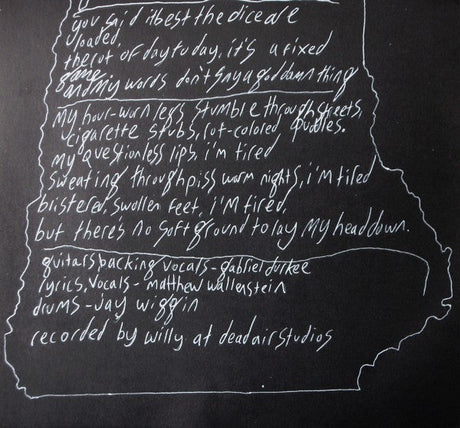 you said it best the dice are
loaded,
the rot of day to day, it's a fixed
game
and my words don't say a goddamn thing
my hour-worn legs stumble through streets,
cigarette stubs, rot-colored puddles.
my questionless lips, i'm tired
sweating through piss warm nights, i'm tired
blistered, swollen feet, i'm tired,
but there's no soft ground to lay my head down.
guitars backing vocals - gabriel durkee
lyrics, vocals - matthew wallenstein
drums - jay wiggin
recorded by willy at dead air studios